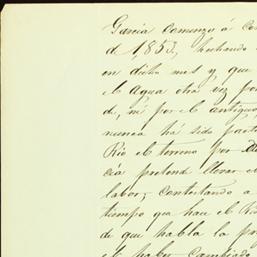 Garcia comenzó á co
d 1,853, hechando
en dicho mes y, que
el agua otra vez por
d, ni por el antiguo
nunca há sido parte
Rio el terreno por
cia pretend llevar e
labor; contestando a
tiempo que hace el Ri
de que habla la pr
el haber cambiado